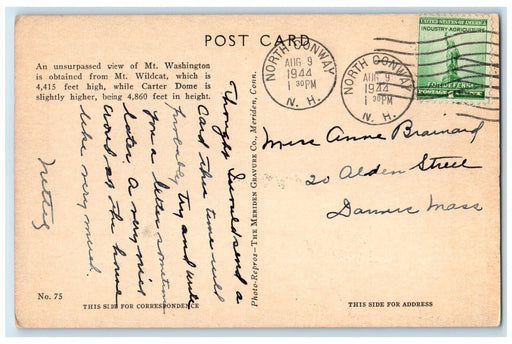 POST CARD
An unsurpassed view of Mt. Washington
is obtained from Mt. Wildcat, which is
4,415 feet high, while Carter Dome is
slightly higher, being 4,860 feet in height.
Thought I would send a
card this time will
try and write
you a letter sometime
later a very nice
crowd at the house
like very much.
Photo-Repros—The Meriden Gravure Co., Meriden, Conn.
NORTH CONWAY
AUG 9
1944
1 30 PM
N. H.
NORTH CONWAY
AUG 9
1944
1 30 PM
N. H.
UNITED STATES OF AMERICA
INDUSTRY AGRICULTURE
FOR DEFENSE
POSTAGE
Miss Anne Brainard
20 Alden Street
Danvers Mass
No. 75
THIS SIDE FOR CORRESPONDENCE
THIS SIDE FOR ADDRESS